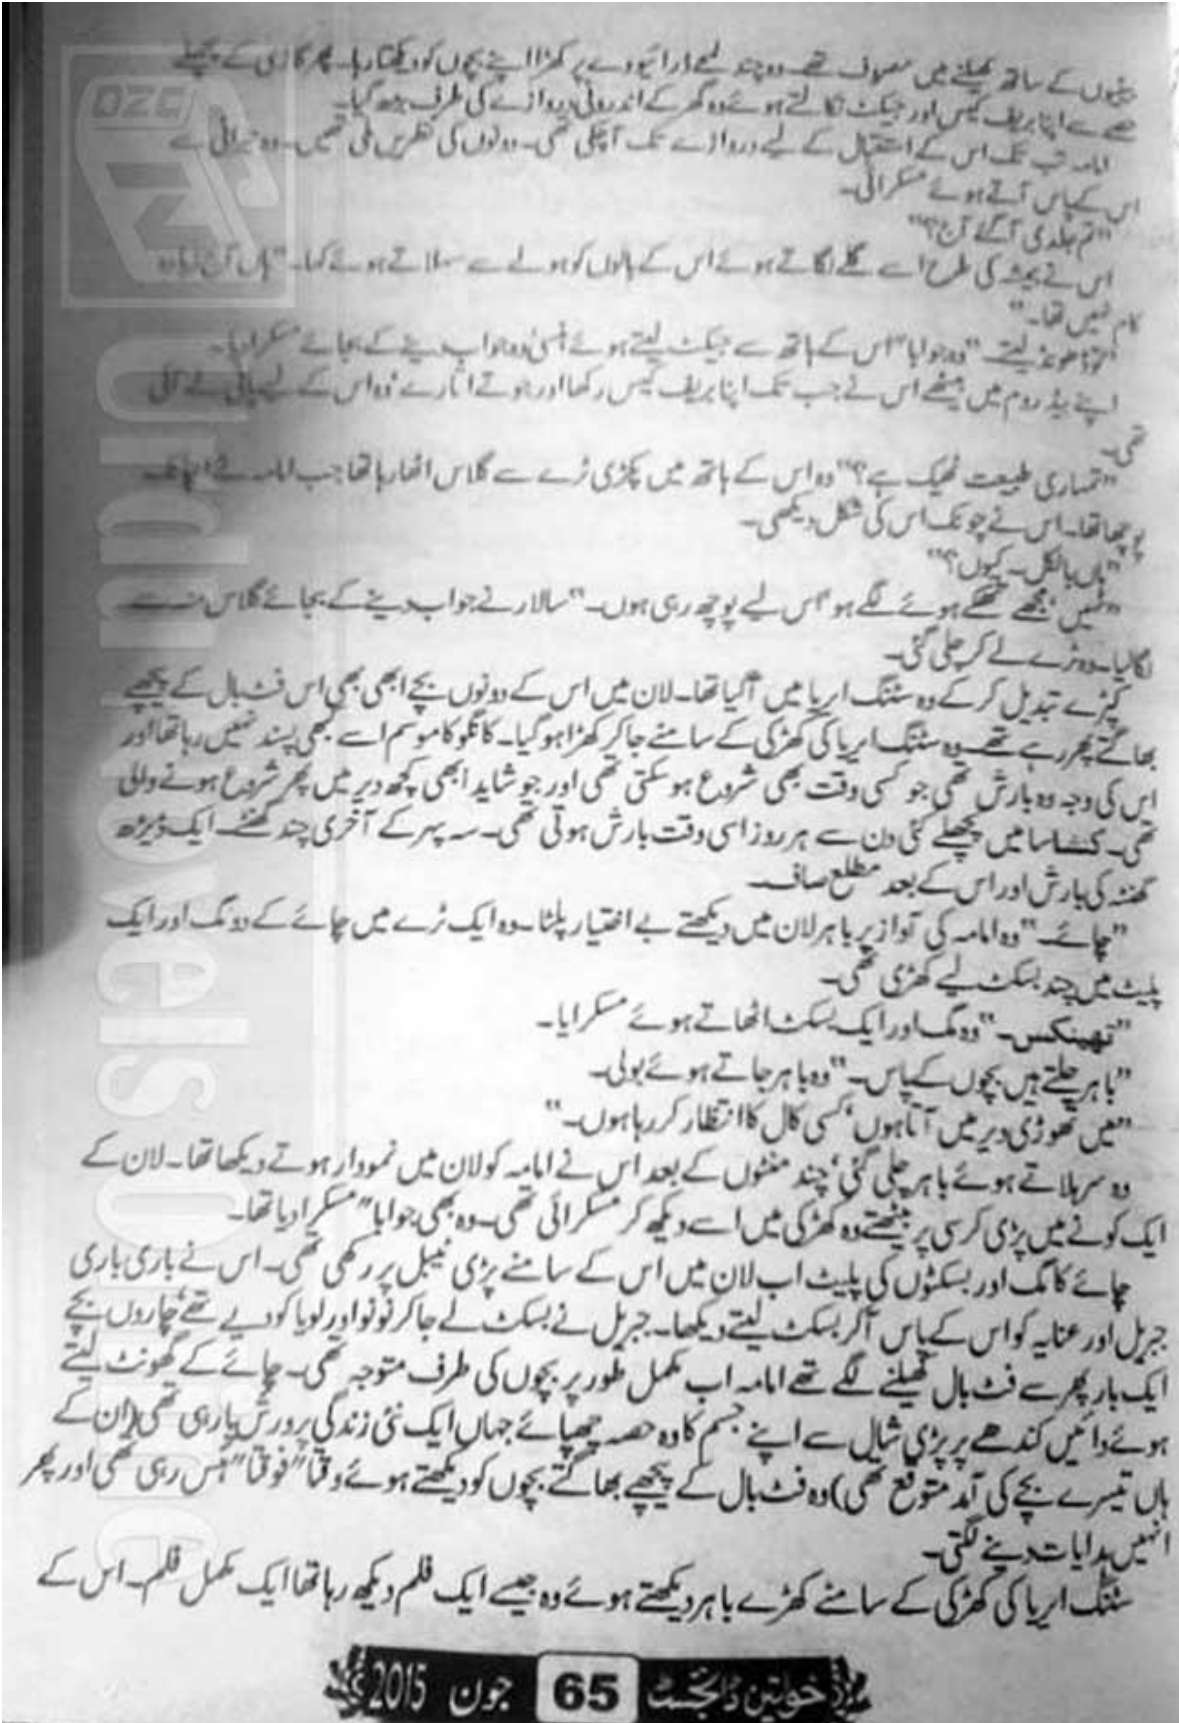 بیٹیوں کے ساتھ کھیلنے میں مصروف تھے۔ وہ چند لمحے ڈرائیو وے پر کھڑا اپنے بچوں کو دیکھتا رہا۔ پھر گاڑی کے پچھلے
حصے سے اپنا بریف کیس اور جیکٹ نکالتے ہوئے وہ گھر کے اندرونی دروازے کی طرف بڑھ گیا۔
امامہ تب تک اس کے استقبال کے لیے دروازے تک آچکی تھی۔ دونوں کی نظریں ملی تھیں۔ وہ حیرانی سے
اس کے پاس آتے ہوئے مسکرائی۔
"تم جلدی آگئے آج؟"
اس نے ہمیشہ کی طرح اسے گلے لگاتے ہوئے اس کے بالوں کو ہولے سے سہلاتے ہوئے کہا۔ "ہاں آج زیادہ
کام نہیں تھا۔"
"تو ڈھونڈ لیتے۔" وہ جوابا" اس کے ہاتھ سے جیکٹ لیتے ہوئے ہنسی وہ جواب دینے کے بجائے مسکرا دیا۔
اپنے بیڈ روم میں بیٹھے اس نے جب تک اپنا بریف کیس رکھا اور جوتے اتارے' وہ اس کے لیے پانی لے آئی
تھی۔
"تمہاری طبیعت ٹھیک ہے؟" وہ اس کے ہاتھ میں پکڑی ٹرے سے گلاس اٹھا رہا تھا جب امامہ نے اچانک
پوچھا تھا۔ اس نے چونک اس کی شکل دیکھی۔
"ہاں بالکل۔ کیوں؟"
"نہیں' مجھے تھکے ہوئے لگے ہو' اس لیے پوچھ رہی ہوں۔" سالار نے جواب دینے کے بجائے گلاس منہ سے
لگا لیا۔ وہ ٹرے لے کر چلی گئی۔
کپڑے تبدیل کرکے وہ سٹنگ ایریا میں آگیا تھا۔ لان میں اس کے دونوں بچے ابھی بھی اس فٹ بال کے پیچھے
بھاگتے پھر رہے تھے۔ وہ سٹنگ ایریا کی کھڑکی کے سامنے جا کر کھڑا ہوگیا۔ کانگو کا موسم اسے کبھی پسند نہیں رہا تھا اور
اس کی وجہ وہ بارش تھی جو کسی وقت بھی شروع ہوسکتی تھی اور جو شاید ابھی کچھ دیر میں پھر شروع ہونے والی
تھی۔ کنشاسا میں پچھلے کئی دن سے ہر روز اسی وقت بارش ہوتی تھی۔ سہ پہر کے آخری چند گھنٹے۔ ایک ڈیڑھ
گھنٹہ کی بارش اور اس کے بعد مطلع صاف۔
"چائے۔" وہ امامہ کی آواز پر باہر لان میں دیکھتے بے اختیار پلٹا۔ وہ ایک ٹرے میں چائے کے دو مگ اور ایک
پلیٹ میں چند بسکٹ لیے کھڑی تھی۔
"تھینکس۔" وہ مگ اور ایک بسکٹ اٹھاتے ہوئے مسکرایا۔
"باہر چلتے ہیں بچوں کے پاس۔" وہ باہر جاتے ہوئے بولی۔
"میں تھوڑی دیر میں آتا ہوں' کسی کال کا انتظار کررہا ہوں۔"
وہ سرہلاتے ہوئے باہر چلی گئی' چند منٹوں کے بعد اس نے امامہ کو لان میں نمودار ہوتے دیکھا تھا۔ لان کے
ایک کونے میں پڑی کرسی پر بیٹھتے وہ کھڑکی میں اسے دیکھ کر مسکرائی تھی۔ وہ بھی جوابا" مسکرا دیا تھا۔
چائے کا مگ اور بسکٹوں کی پلیٹ اب لان میں اس کے سامنے پڑی ٹیبل پر رکھی تھی۔ اس نے باری باری
جبریل اور عنایہ کو اس کے پاس آکر بسکٹ لیتے دیکھا۔ جبریل نے بسکٹ لے جا کر ٹوٹو اور لویا کو دیے تھے' چاروں بچے
ایک بار پھر سے فٹ بال کھیلنے لگے تھے امامہ اب مکمل طور پر بچوں کی طرف متوجہ تھی۔ چائے کے گھونٹ لیتے
ہوئے دائیں کندھے پر پڑی شال سے اپنے جسم کا وہ حصہ چھپائے جہاں ایک نئی زندگی پرورش پارہی تھی (ان کے
ہاں تیسرے بچے کی آمد متوقع تھی) وہ فٹ بال کے پیچھے بھاگتے بچوں کو دیکھتے ہوئے وقتا" فوقتا" ہنس رہی تھی اور پھر
انہیں ہدایات دینے لگتی۔
سٹنگ ایریا کی کھڑکی کے سامنے کھڑے باہر دیکھتے ہوئے وہ جیسے ایک فلم دیکھ رہا تھا ایک مکمل فلم۔ اس کے
خواتین ڈائجسٹ 65 جون 2015